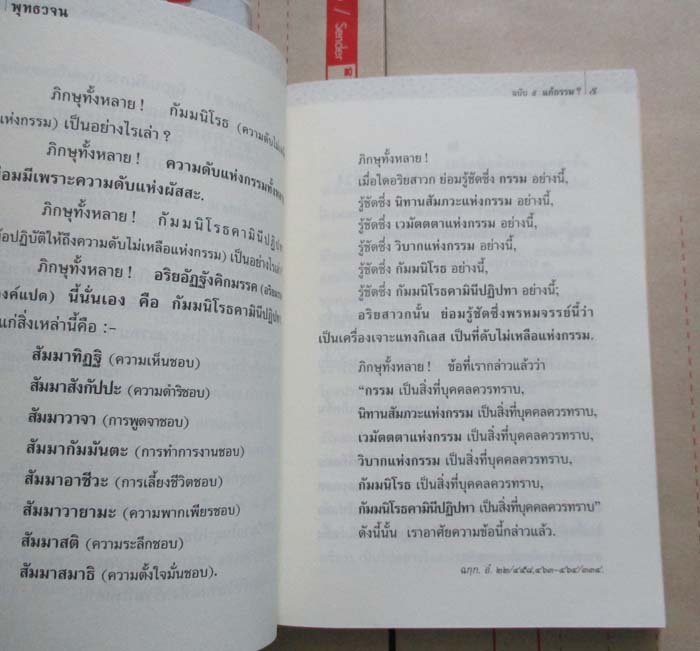 พุทธวจน
ภิกษุทั้งหลาย ! กัมมนิโรธ (ความดับไม่
แห่งกรรม) เป็นอย่างไรเล่า ?
ภิกษุทั้งหลาย ! ความดับแห่งกรรมทั้ง
ย่อมมีเพราะความดับแห่งผัสสะ.
ภิกษุทั้งหลาย ! กัมมนิโรธคามินีปฏิปทา
ข้อปฏิบัติให้ถึงความดับไม่เหลือแห่งกรรม) เป็นอย่างไรเล่า
ภิกษุทั้งหลาย ! อริยอัฏฐังคิกมรรค
องค์แปด) นี้นั่นเอง คือ กัมมนิโรธคามินีปฏิปทา
แก่สิ่งเหล่านี้คือ :-
สัมมาทิฏฐิ (ความเห็นชอบ)
สัมมาสังกัปปะ (ความดำริชอบ)
สัมมาวาจา (การพูดจาชอบ)
สัมมากัมมันตะ (การทำการงานชอบ)
สัมมาอาชีวะ (การเลี้ยงชีวิตชอบ)
สัมมาวายามะ (ความพากเพียรชอบ)
สัมมาสติ (ความระลึกชอบ)
สัมมาสมาธิ (ความตั้งใจมั่นชอบ).
/ Sender
ฉบับ ๕ แก้กรรม ? ๕
ภิกษุทั้งหลาย !
เมื่อใดอริยสาวก ย่อมรู้ชัดซึ่ง กรรม อย่างนี้,
รู้ชัดซึ่ง นิทานสัมภวะแห่งกรรม อย่างนี้,
รู้ชัดซึ่ง เวมัตตตาแห่งกรรม อย่างนี้,
รู้ชัดซึ่ง วิบากแห่งกรรม อย่างนี้,
รู้ชัดซึ่ง กัมมนิโรธ อย่างนี้,
รู้ชัดซึ่ง กัมมนิโรธคามินีปฏิปทา อย่างนี้;
อริยสาวกนั้น ย่อมรู้ชัดซึ่งพรหมจรรย์นี้ว่า
เป็นเครื่องเจาะแทงกิเลส เป็นที่ดับไม่เหลือแห่งกรรม.
ภิกษุทั้งหลาย ! ข้อที่เรากล่าวแล้วว่า
“กรรม เป็นสิ่งที่บุคคลควรทราบ,
นิทานสัมภวะแห่งกรรม เป็นสิ่งที่บุคคลควรทราบ,
เวมัตตตาแห่งกรรม เป็นสิ่งที่บุคคลควรทราบ,
วิบากแห่งกรรม เป็นสิ่งที่บุคคลควรทราบ,
กัมมนิโรธ เป็นสิ่งที่บุคคลควรทราบ,
กัมมนิโรธคามินีปฏิปทา เป็นสิ่งที่บุคคลควรทราบ”
ดังนี้นั้น เราอาศัยความข้อนี้กล่าวแล้ว.
ฉกฺก. อํ. ๒๒/๔๕๘,๔๖๓-๔๖๔/๓๓๔.